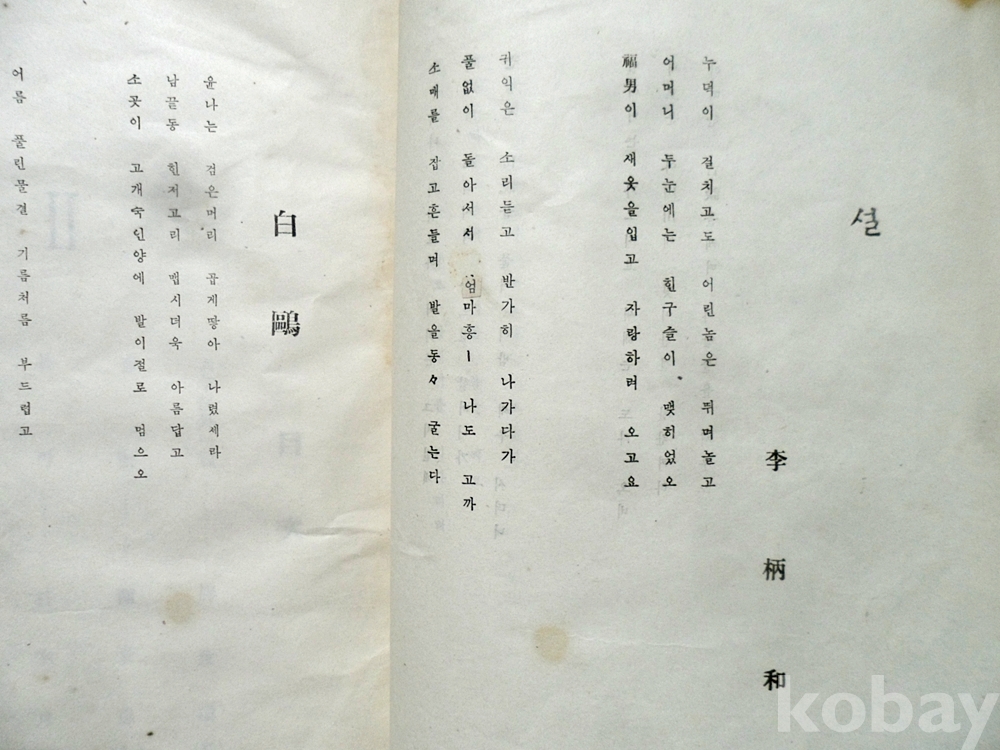 설
李柄和
누덕이 걸치고도 어린놈은 뛰며놀고
어머니 두눈에는 힌구슬이 맺히었오
福男이 새옷을입고 자랑하려 오고요
귀익은 소리듣고 반가히 나가다가
풀없이 돌아서서 엄마흥ㅣ 나도 고까
소매를 잡고흔들며 발을동々 굴는다
白鷗
윤나는 검은머리 곱게땋아 나렸세라
남끝동 힌저고리 맵시더욱 아름답고
소곳이 고개숙인양에 발이절로 멈으오
어름 풀린물결 기름처름 부드럽고
kobay